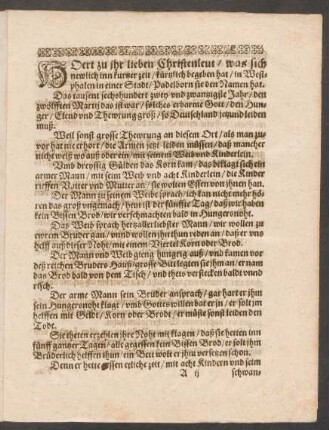 HOert zu ihr lieben Christenleut / was sich
newlich inn kurtzer zeit / kürtzlich begeben hat / in West-
phalen in einer Stadt / Padelborn sie den Namen hat.
Das tausent sechshundert zwey vnd zwantzigste Jahr / den
zwölfften Martz das ist war / solches erbarme Gott / den Hun-
ger / Elend vnd Thewrung groß / so Deutschland jetzund leiden
muß.
Weil sonst grosse Thewrung an diesem Ort / als man zu-
vor hat nie erhört / die Armen jetzt leiden müssen / daß mancher
nicht weiß wo auß oder ein / mit seinem Weib vnd Kinderlein.
Vmb dreyssig Gülden das Korn kam / das beklagt sich ein
armer Mann / mit seim Weib vnd acht Kinderlein / die Kinder
riefften Vatter vnd Mutter an / sie wolten Essen von jhnen han.
Der Mann zu seinem Weibe sprach / ich kan nicht mehr hö-
ren das groß vngemach / heut ist der fünffte Tag / daß wir haben
kein Bissen Brod / wir verschmachten bald in Hungersnöht.
Das Weib sprach hertzallerliebster Mann / wir wollen zu
ewrem Bruder gan / vnnd wollen jhn thun reden an / daß er vns
helff auß dieser Noht / mit einem Viertel Korn oder Brod.
Der Mann vnd Weib gieng hungerig auß / vnd kamen vor
deß reichen Bruders Hauß / grosse Bitt legten sie jhm an / er nam
das Brod bald von dem Tisch / vnd thets verstecken baldt vnnd
risch.
Der arme Mann sein Bruder ansprach / gar hart er jhm
sein Hungersnoht klagt / vmb Gottes willen bat er jn / er solt jm
helffen mit Geldt / Korn oder Brodt / er müste sonst leiden den
Todt.
Sie theten erzehlen jhre Noht mit klagen / daß sie hetten inn
fünff gantzer Tagen / alle gegessen kein Bissen Brod / er solt jhm
Brüderlich helffen jhun / ein Bett wolt er jhm versetzen schon.
Denn er hette essen etliche zeit / mit acht Kindern vnd seim
A ij schwan-